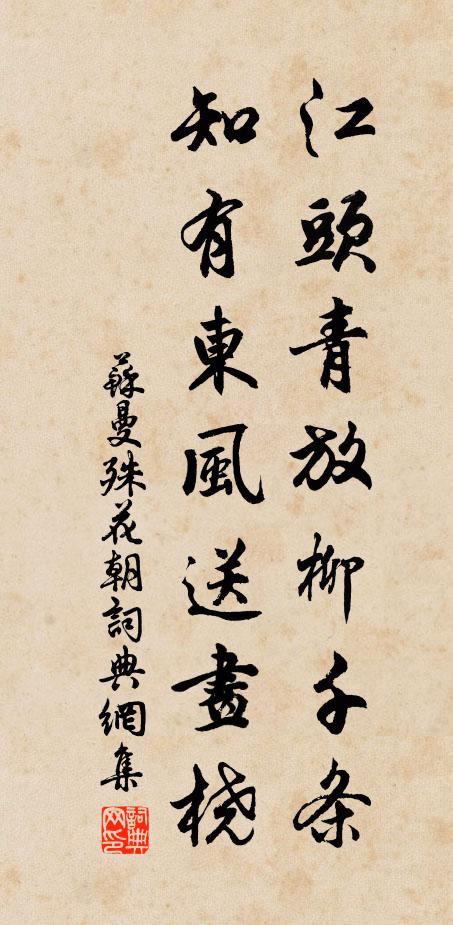 江頭青放柳千条
知有東風送畫橈
蘇曼殊花朝詞典網集
詞典網印